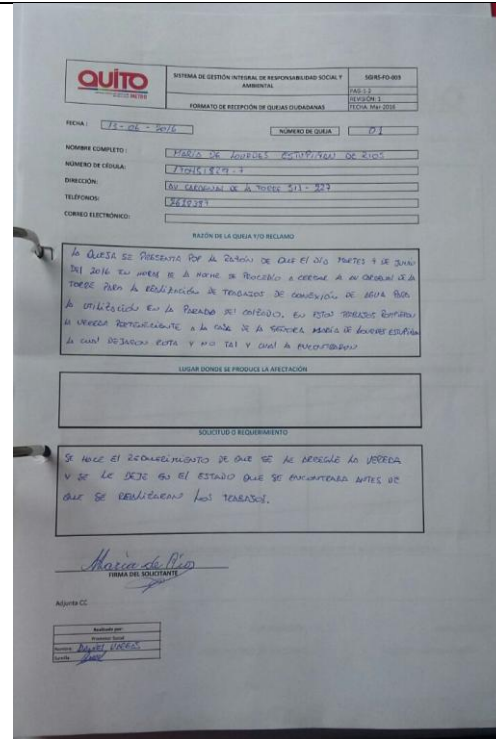 QUITO
SISTEMA DE GESTIÓN INTEGRAL DE RESPONSABILIDAD SOCIAL Y AMBIENTAL
FORMATO DE RECEPCIÓN DE QUEJAS CIUDADANAS
SGIRS-FO-003
PAG:1-2
REVISIÓN: 1
FECHA: Mar-2016
FECHA:
NÚMERO DE QUEJA 01
NOMBRE COMPLETO: MARÍA DE LOURDES ESTUPIÑAN DE RIOS
NÚMERO DE CÉDULA:
DIRECCIÓN: AV CARDENAL DE LA TORRE S11-227
TELÉFONOS:
CORREO ELECTRÓNICO:
RAZÓN DE LA QUEJA Y/O RECLAMO
LA QUEJA SE PRESENTA POR LA RAZÓN DE QUE EL DÍA MARTES 7 DE JUNIO
DEL 2016 EN HORAS DE LA NOCHE SE PROCEDIO A CERRAR LA AV CARDENAL DE LA
TORRE PARA LA REALIZACIÓN DE TRABAJOS DE CONEXIÓN DE AGUA PARA
LA UTILIZACIÓN EN LA PARADA DEL CALZADO. EN ESTOS TRABAJOS ROMPIERON
LA VEREDA PERTENECIENTE A LA CASA DE LA SEÑORA MARÍA DE LOURDES ESTUPIÑAN
LA CUAL DEJARON ROTA Y NO TAL Y CUAL LA ENCONTRARON
LUGAR DONDE SE PRODUCE LA AFECTACIÓN
SOLICITUD O REQUERIMIENTO
SE HACE EL REQUERIMIENTO DE QUE SE LE ARREGLE LA VEREDA
Y SE LE DEJE EN EL ESTADO QUE SE ENCONTRABA ANTES DE
QUE SE REALIZARAN LOS TRABAJOS.
María de Rios
FIRMA DEL SOLICITANTE
Adjunta CC.
Realizado por:
Promotor Social
Nombre: